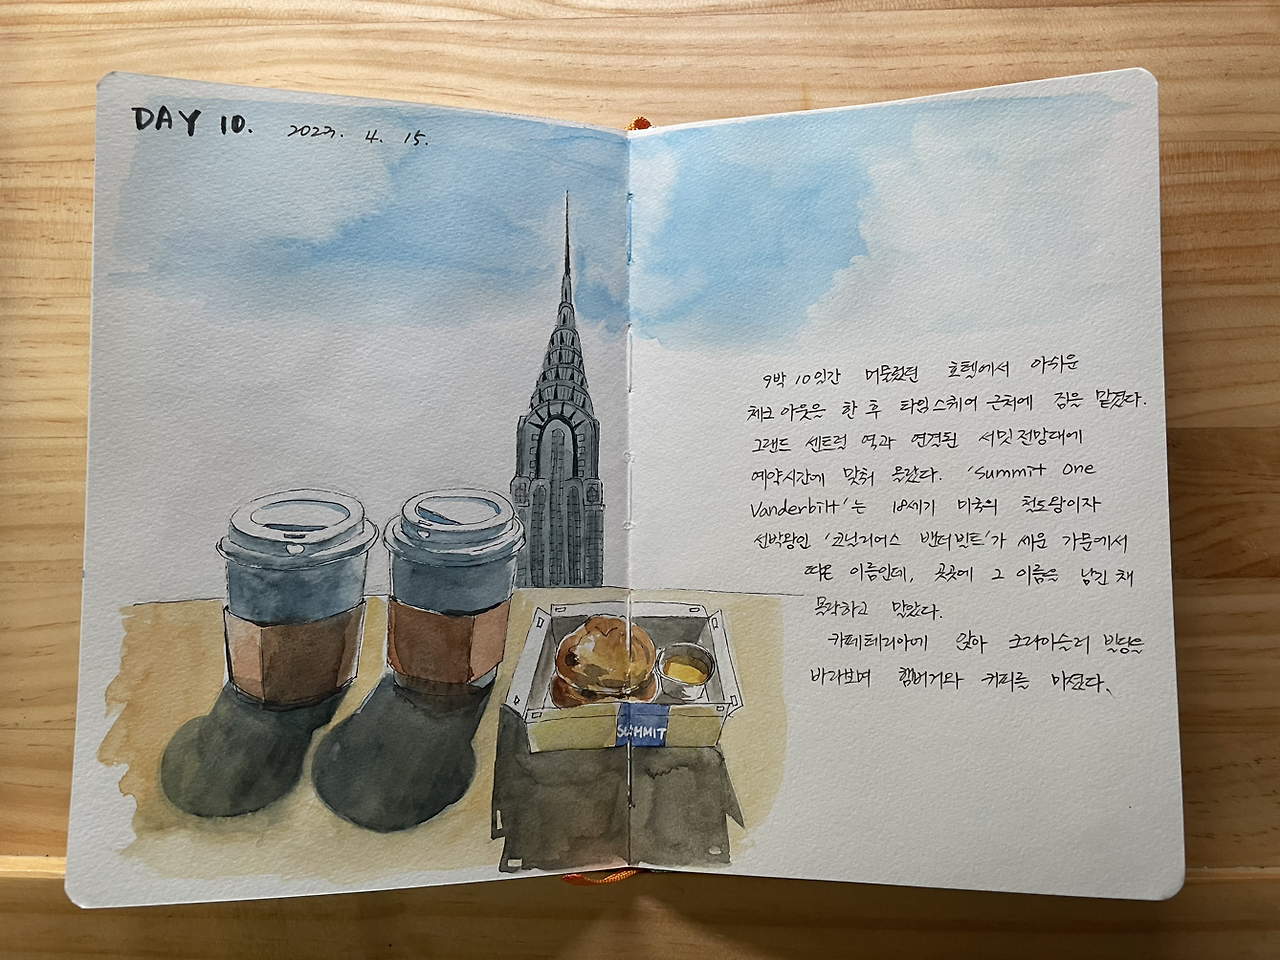 DAY 10. 2023. 4. 15.
9박 10일간 머물렀던 호텔에서 아쉬운
체크아웃을 한 후 타임스퀘어 근처에 짐을 맡겼다.
그랜드 센트럴 역과 연결된 서밋 전망대에
예약시간에 맞춰 올랐다. 'Summit one
Vanderbilt'는 18세기 미국의 철도왕이자
선박왕인 '코닐리어스 밴더빌트'가 세운 가문에서
따온 이름인데, 곳곳에 그 이름을 남긴 채
몰락하고 말았다.
카페테리아에 앉아 크라이슬러 빌딩을
바라보며 햄버거와 커피를 마셨다.
SUMMIT